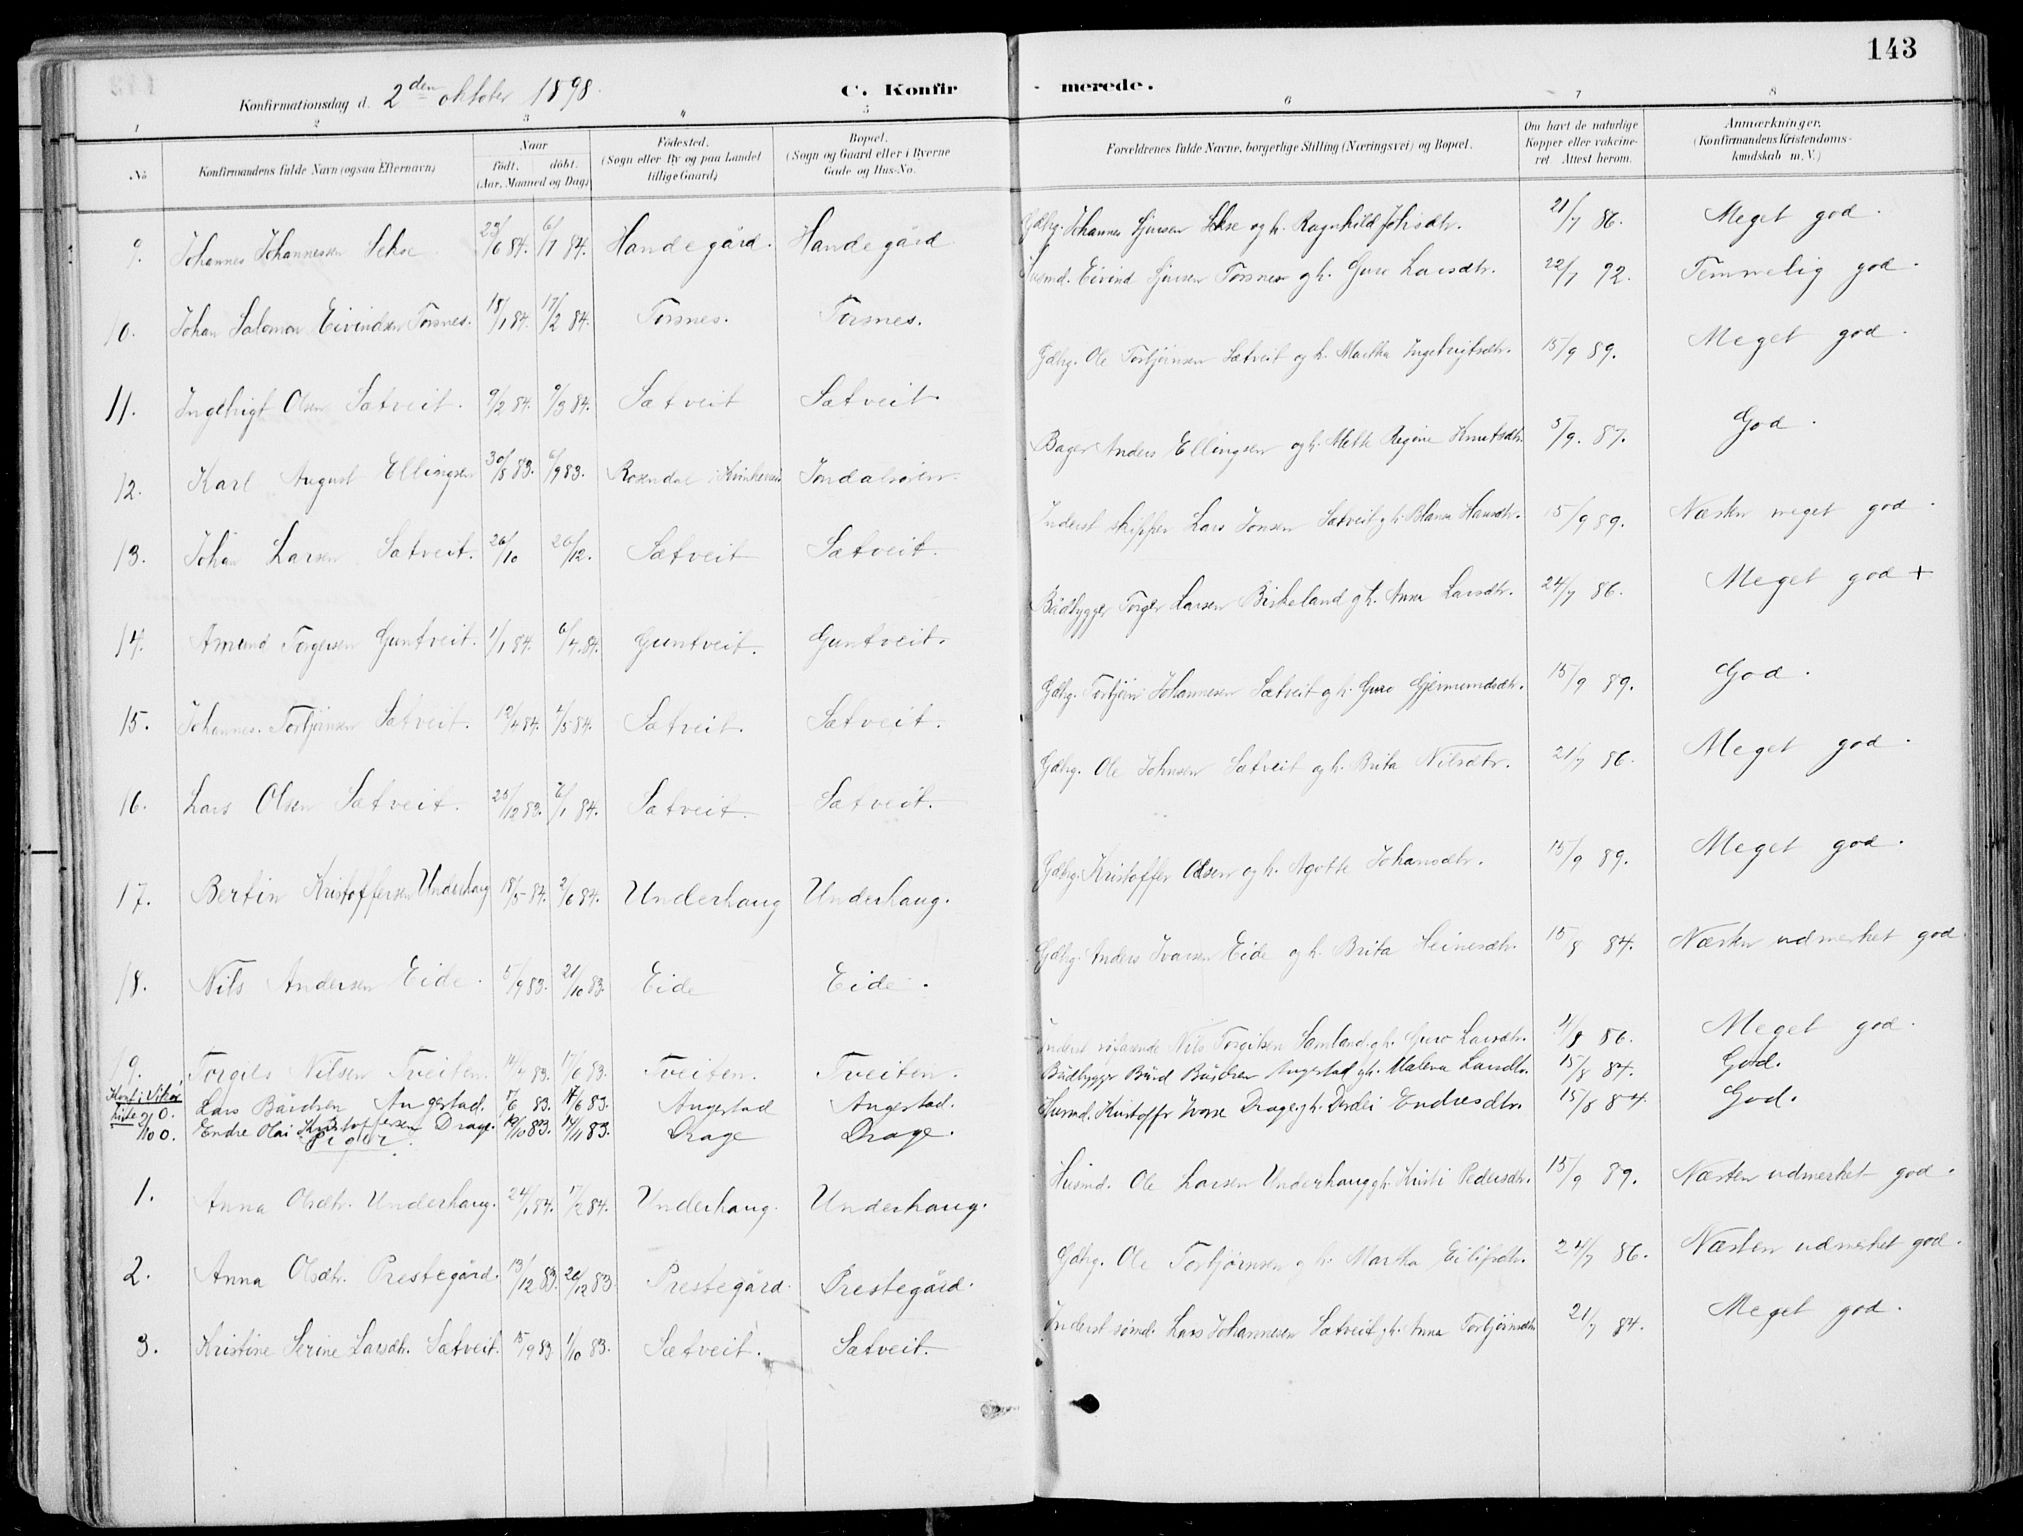 143
Konfirmationsdag d. 2den oktober 1898.
C. Konfir - merede.
1 2 3 4 5 6 7 8
No
Konfirmandens fulde Navn (ogsaa Efternavn)
Naar
födt. döbt.
(Aar, Maaned og Dag)
Födested.
(Sogn eller By og paa Landet
tillige Gaard)
Bopæl.
(Sogn og Gaard eller i Byerne
Gade og Hus-No.
Forældrenes fulde Navne, borgerlige Stilling (Næringsvei) og Bopæl.
Om havt de naturlige
Kopper eller vakcine-
ret. Attest herom.
Anmærkninger.
(Konfirmandens Kristendoms-
kundskab m. V.)
9. Johannes Johannesen Sekse 23/6 84. 6/7 84. Handegård. Handegård. Gdbrg. Johannes Sjursen Sekse og h. Ragnhild Johsdtr. 21/7 86. Meget god.
10. Johan Salomon Eivindsen Torsnes. 18/1 84. 17/2 84. Torsnes. Torsnes. Husmd. Eivind Sjursen Torsnes og h. Guro Larsdtr. 22/7 92. Temmelig god.
11. Ingebrigt Olsen Sætveit. 9/2 84. 9/3 84. Sætveit Sætveit. Gdbrg. Ole Torbjørnsen Sætveit og h. Martha Ingebrigtsdtr. 15/9 89. Meget god.
12. Karl August Ellingsen 30/8 83. 6/9 83. Rosendal i Kvinherred Jondalsøren. Bager Anders Ellingsen og h. Mette Regine Knutsdtr. 5/9. 87. God.
13. Johan Larsen Sætveit. 26/10 26/12. Sætveit Sætveit. Inderst skipper Lars Jonsen Sætveit og h. Blansa Hansdtr. 15/9 89. Næsten meget god.
14. Amund Torgersen Guntveit. 1/1 84. 6/4. 84. Guntveit. Guntveit. Bådbygger Torger Larsen Birkeland og h. Anna Larsdtr. 24/7 86. Meget god +
15. Johannes Torbjørnsen Sætveit. 12/4 84. 1/5 84. Sætveit. Sætveit. Gdbrg. Torbjørn Johannesen Sætveit og h. Guro Gjermundsdtr. 15/9 89. God.
16. Lars Olsen Sætveit. 25/12 83. 6/1 84. Sætveit. Sætveit. Gdbrg. Ole Johnsen Sætveit og h. Brita Nilsdtr. 21/7 86. Meget god.
17. Bertin Kristoffersen Underhaug 18/5 84. 2/6 84. Underhaug Underhaug. Gdbrg. Kristoffer Olsen og h. Agotte Johansdtr. 15/9 89. Meget god.
18. Nils Andersen Eide. 5/9 83. 21/10 83. Eide Eide. Gdbrg. Anders Ivarsen Eide og h. Brita Heinesdtr. 15/8 84. Næsten udmerket god.
19. Torgils Nilsen Tveiten. 14/4 83. 17/6 83. Tveiten. Tveiten. Inderst söfarende Nils Torgilsen Samland og h. Guro Larsdtr. 4/8 86. Meget god.
Konf. i Vikør
20. Lars Bårdsen Augestad. 17/6 83. Augestad Augestad. Bådbygger Bård Bårdsen Augestad og h. Malena Larsdtr. 15/8 84. God.
Endre Olai Kristoffersen Drage. 10/10 83. 14/11 83. Drage Drage. Husmd. Kristoffer Drage og h. Endresdtr. 15/8 84. God.
Piger.
1. Anna Olsdtr. Underhaug. 24/1 84. 17/2 84. Underhaug. Underhaug. Husmd. Ole Larsen Underhaug og h. Kristi Pedersdtr. 15/9 89. Næsten udmerket god.
2. Anna Olsdtr. Prestegård. 13/12 83. 26/12 83. Prestegård. Prestegård. Gdbrg. Ole Torbjørnsen og h. Martha Eilifsdtr. 24/7 86. Næsten udmerket god.
3. Kristine Serine Larsdtr. Sætveit. 15/9 83. 1/10 83. Sætveit. Sætveit. Inderst sömd. Lars Johannesen Sætveit og h. Anna Torbjørnsdtr. 21/7 84. Meget god.